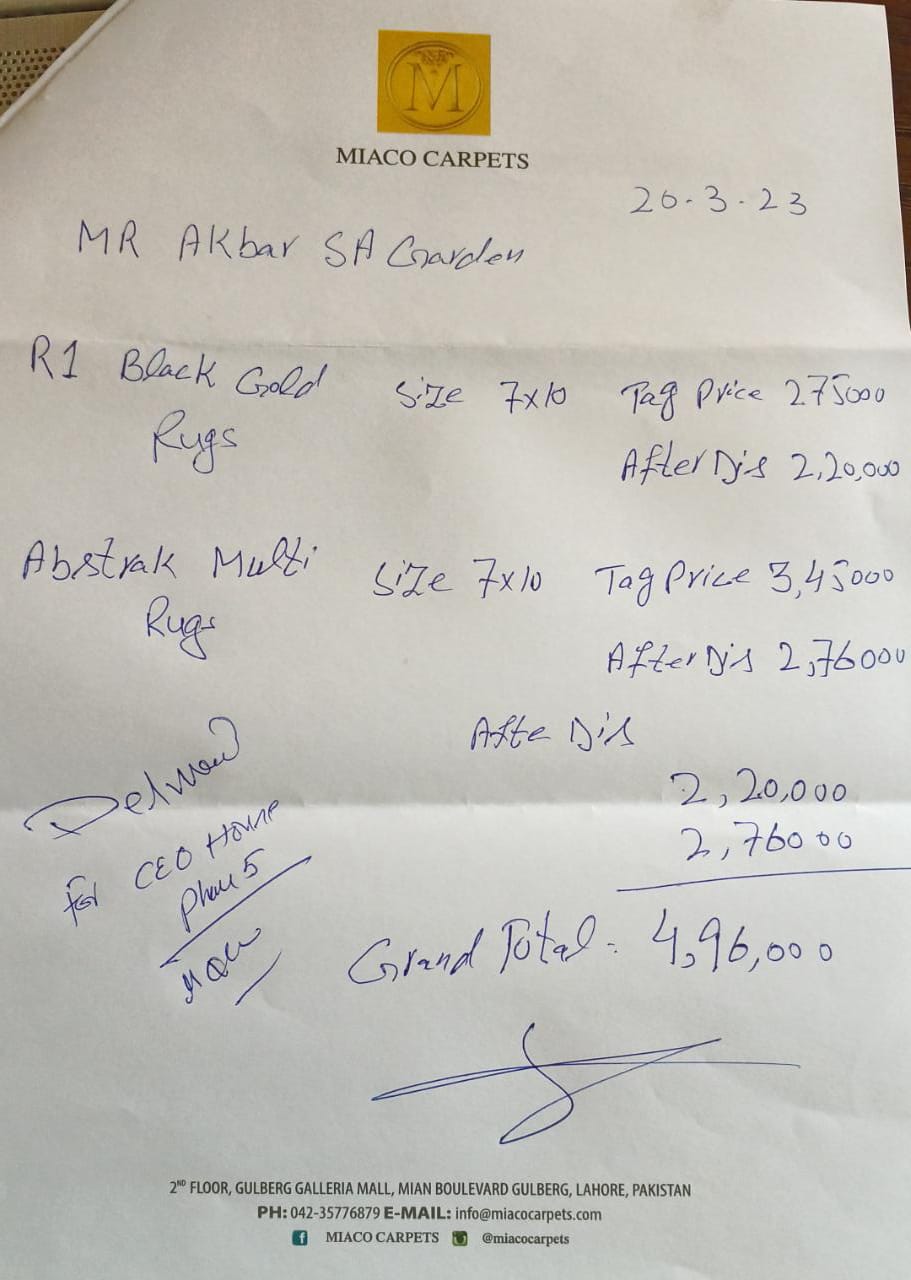 M
MIACO CARPETS
20-3-23
MR Akbar SA Garden
R1 Black Gold Size 7x10 Tag Price 275000
Rugs After Dis 2,20,000
Abstrak Multi Size 7x10 Tag Price 3,45000
Rugs After Dis 2,76000
Afte Dis
2,20,000
2,76000
For CEO House
Phase 5
Grand Total = 4,96,000
2ND FLOOR, GULBERG GALLERIA MALL, MIAN BOULEVARD GULBERG, LAHORE, PAKISTAN
PH: 042-35776879 E-MAIL: info@miacocarpets.com
MIACO CARPETS @miacocarpets